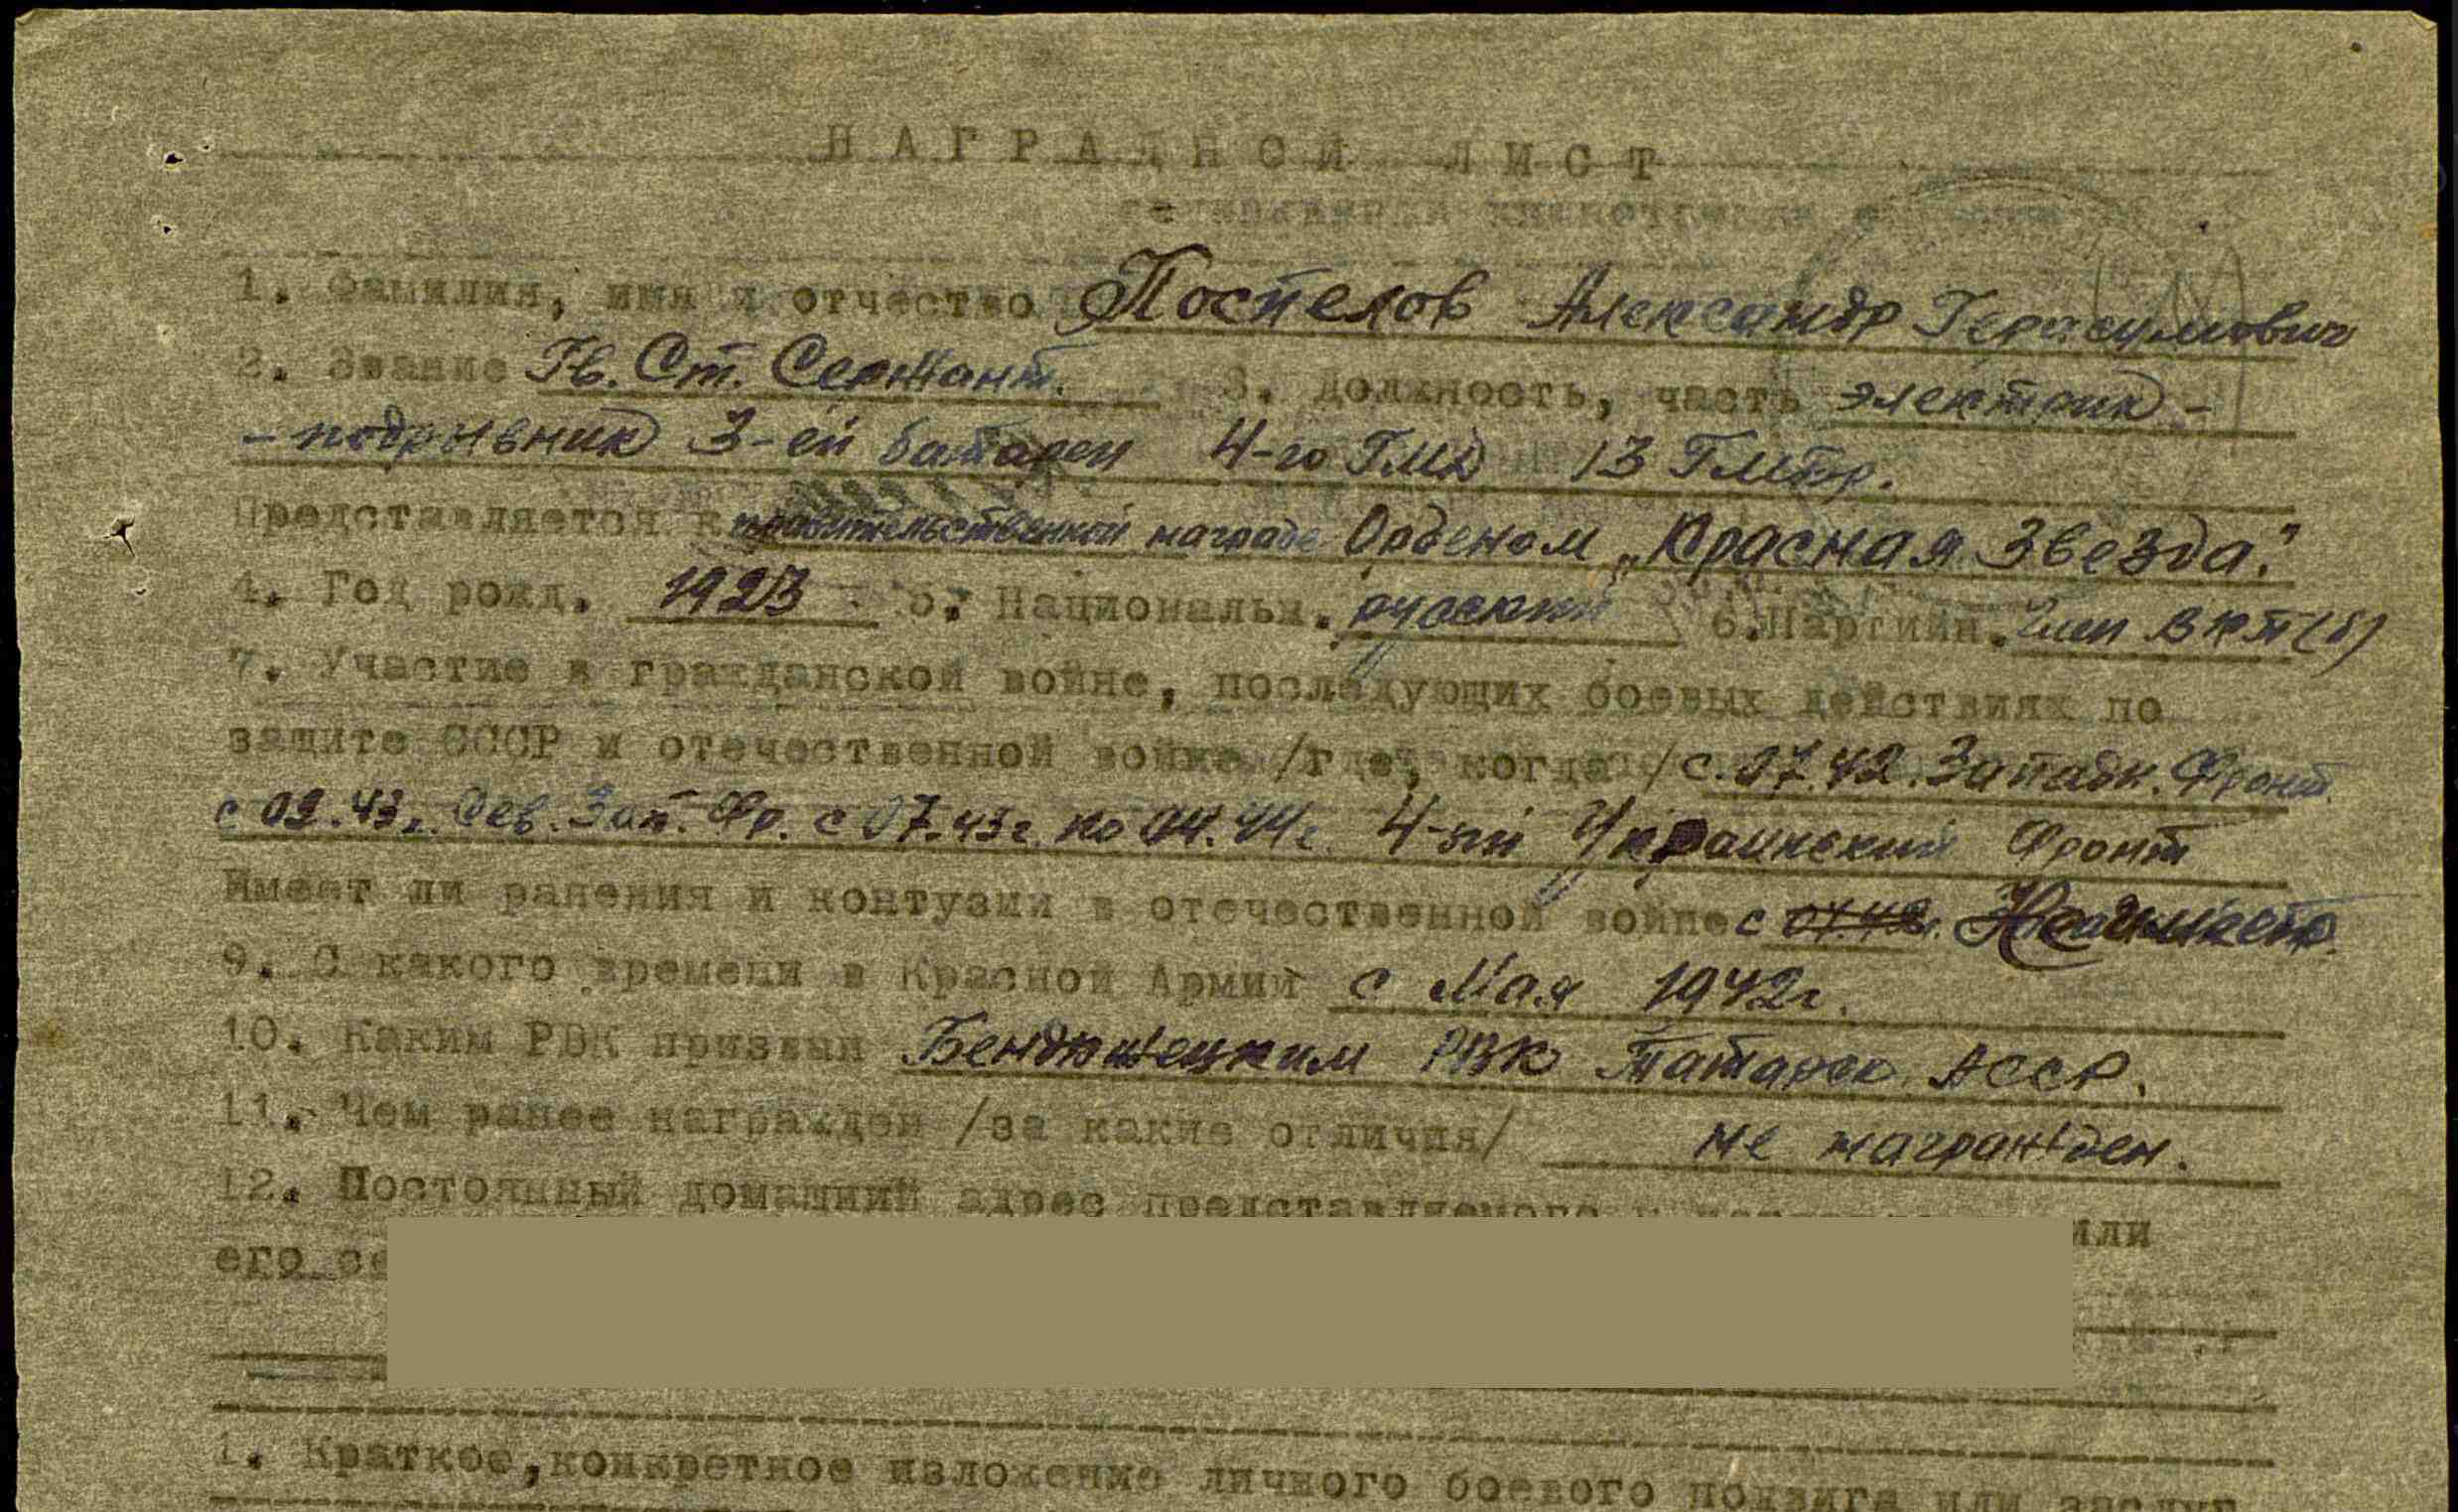 НАГРАДНОЙ ЛИСТ
1. Фамилия, имя и отчество Поспелов Александр Герасимович
2. Звание Гв. Ст. Сержант. 3. должность, часть электрик-
-подрывник 3-ей батареи 4-го ГМД 13 ГМбр.
Представляется к правительственной награде Орденом „Красная Звезда."
4. Год рожд. 1923. 5. Национальн. русский 6. Партийн. Член ВКП(б)
7. Участие в гражданской войне, последующих боевых действиях по
защите СССР и отечественной войне /где, когда/ с 07.42. Западн. Фронт.
с 02.43г. Сев. Зап. Фр. с 07.43г. по 04.44г. 4-ый Украинский Фронт
Имеет ли ранения и контузии в отечественной войне с
9. С какого времени в Красной Армии с Мая 1942г.
10. Каким РВК призван РВК Татарск. АССР.
11. Чем ранее награжден /за какие отличия/ не награжден.
12. Постоянный домашний адрес представляемого к или
его
1. Краткое, конкретное изложение личного боевого подвига или заслуг